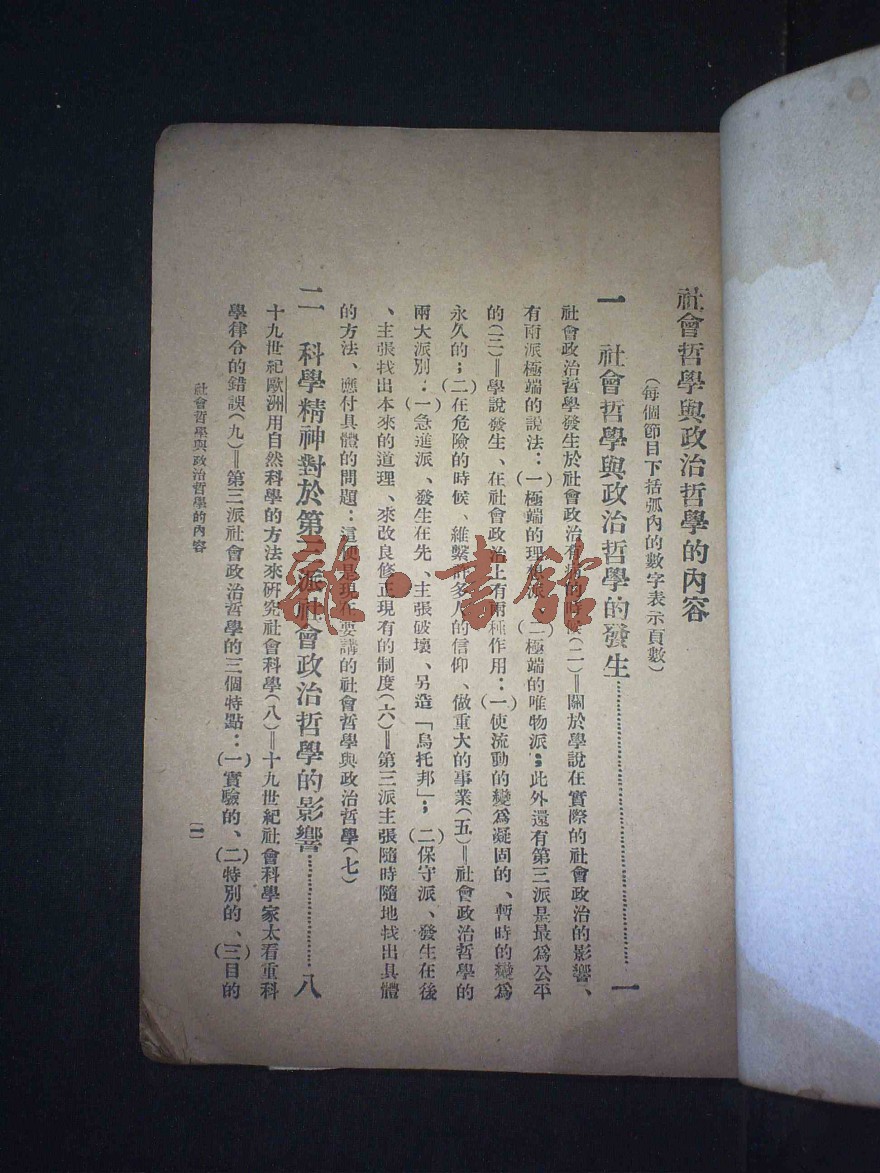 社會哲學與政治哲學的內容
(每個節目下括弧內的數字表示頁數)
一 社會哲學與政治哲學的發生…………一
社會政治哲學發生於社會政治有病的時候(二)‖關於學說在實際的社會政治的影響、
有兩派極端的說法:(一)極端的理想派(二)極端的唯物派;此外還有第三派是最爲公平
的(三)‖學說發生、在社會政治上有兩種作用:(一)使流動的變爲凝固的、暫時的變爲
永久的;(二)在危險的時候、維繫許多人的信仰、做重大的事業(五)‖社會政治哲學的
兩大派別:(一)急進派、發生在先、主張破壞、另造「烏托邦」;(二)保守派、發生在後
、主張找出本來的道理、來改良修正現有的制度(六)‖第三派主張隨時隨地找出具體
的方法、應付具體的問題:這便是現在要講的社會哲學與政治哲學(七)
二 科學精神對於第三派社會政治哲學的影響…………八
十九世紀歐洲用自然科學的方法來研究社會科學(八)‖十九世紀社會科學家太看重科
學律令的錯誤(九)‖第三派社會政治哲學的三個特點:(一)實驗的、(二)特別的、(三)目的
社會哲學與政治哲學的內容
(一)
雜·書館